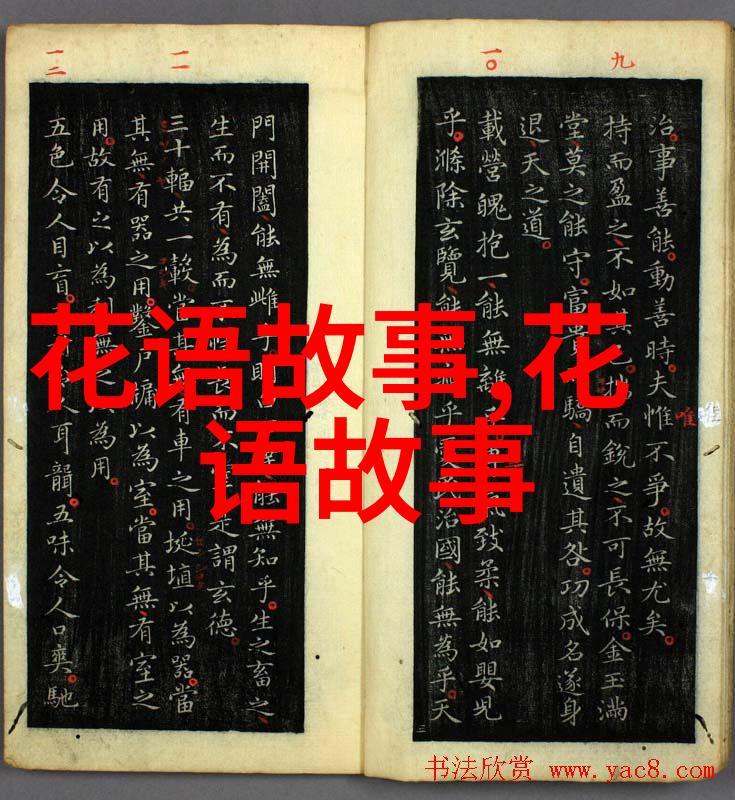 花语故事,花
语故事
九
一〇
一一
一二
治事善能動善時夫惟不爭故無尤矣
唯
持而盈之不如其已揣而銳之不可長保金玉滿
堂莫之能守富貴驕自遺其咎功成名遂身
退天之道
載營魄抱一能無離致柔能如嬰兒
乎滌除玄覽能無乎民治國能無為乎天
門開闔能無雌乎明白能無知乎生之畜之
生而不有為而不恃長而不是謂玄德
三十輻共一轂當其無有車之用埏埴以為器當
其無有器之用鑿戶牖以為室當其無有室之
用故有之以為利無之以為用
五色令人目盲人耳聾五味令人口爽馳
书法欣赏 www.yac8.com